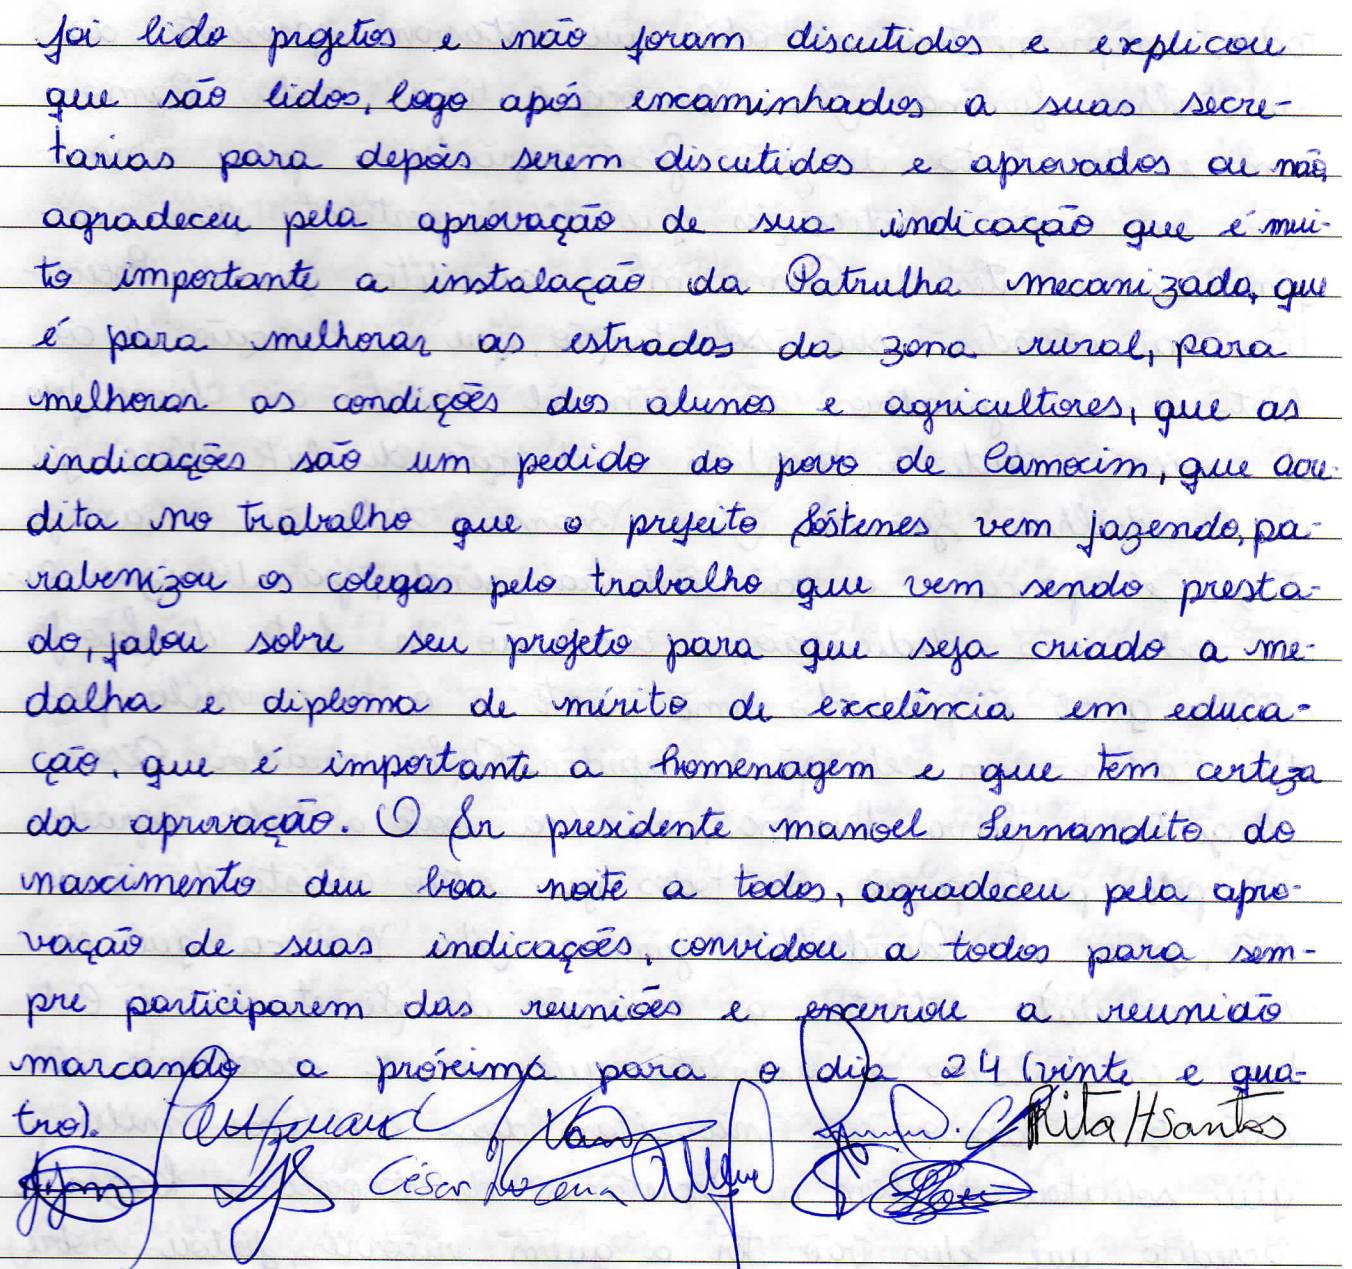 foi lido projetos e não foram discutidos e explicou
que são lidos, logo após encaminhados a suas secre-
tarias para depois serem discutidos e aprovados ou não,
agradeceu pela aprovação de sua indicação que é mui-
to importante a instalação da Patrulha mecanizada, que
é para melhorar as estradas da zona rural, para
melhorar as condições dos alunos e agricultores, que as
indicações são um pedido do povo de Camocim, que acre-
dita no trabalho que o prefeito Sóstenes vem fazendo, pa-
rabenizou os colegas pelo trabalho que vem sendo presta-
do, falou sobre seu projeto para que seja criado a me-
dalha e diploma de mérito de excelência em educa-
ção. que é importante a homenagem e que tem certeza
da aprovação. O Sr presidente manoel Fernandito do
nascimento deu boa noite a todos, agradeceu pela apro-
vação de suas indicações, convidou a todos para sem-
pre participarem das reuniões e encerrou a reunião
marcando a próxima para o dia 24 (vinte e qua-
tro). Rita H Santos
César